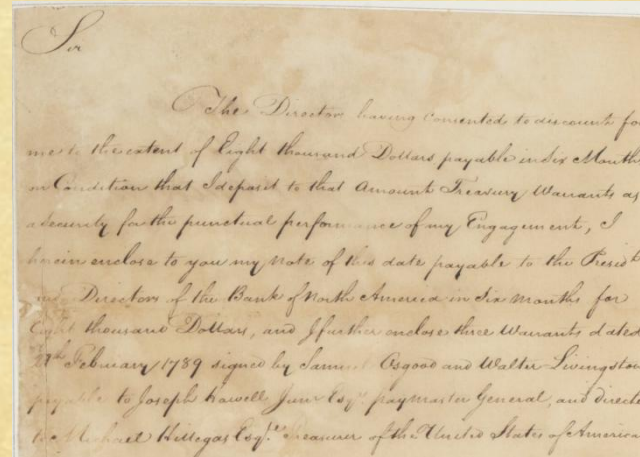 Sir
The Directors having consented to discount for
me to the extent of Eight thousand Dollars payable in Six Months
on Condition that I deposit to that Amount Treasury Warrants as
a Security for the punctual performance of my Engagement, I
herein enclose to you my Note of this date payable to the Presidt
Directors of the Bank of North America in Six Months for
Eight thousand Dollars, and I further enclose three Warrants dated
February 1789 signed by Samuel Osgood and Walter Livingston
payable to Joseph Howell Junr Esqr. paymaster General, and directe
to Michael Hillegas Esqr. Treasurer of the United States of America